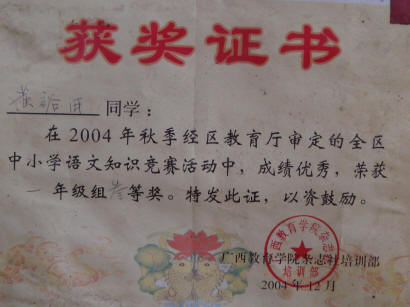 获奖证书
同学：
在2004年秋季经区教育厅审定的全区
中小学语文知识竞赛活动中，成绩优秀，荣获
一年级组叁等奖。特发此证，以资鼓励。
广西教育学院杂志社培训部
2004年12月
广西教育学院杂志社
培训部